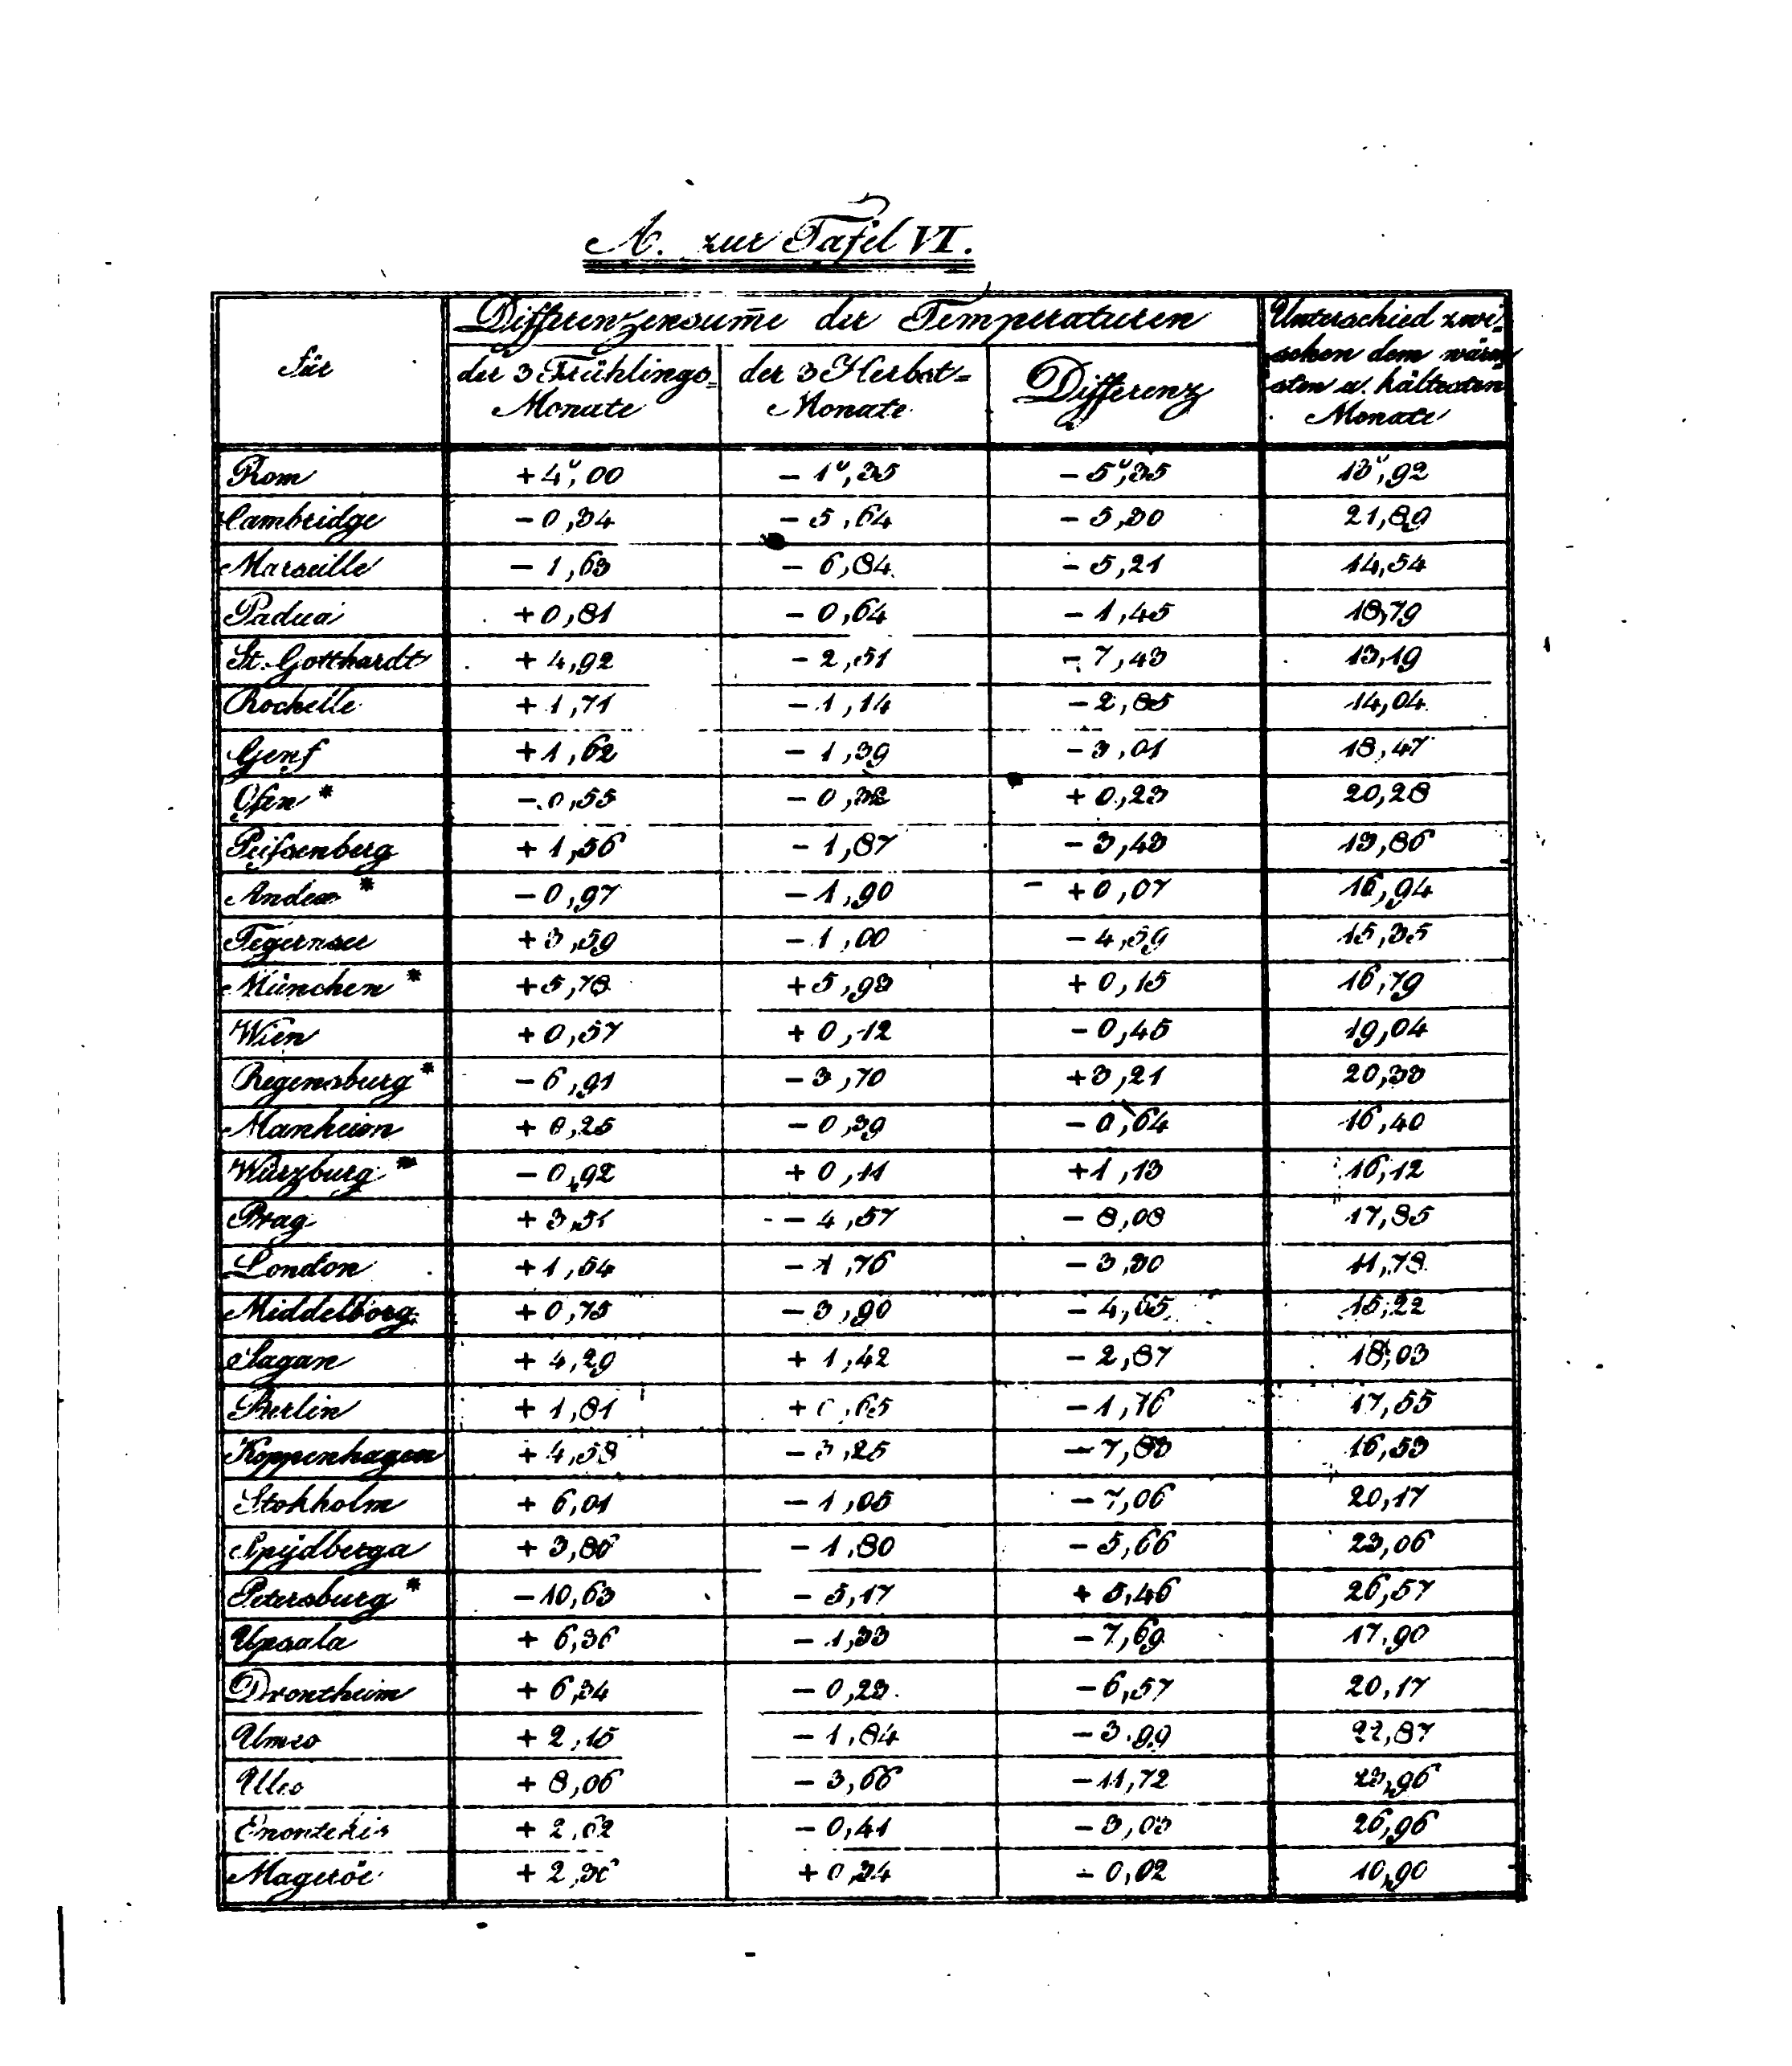 A. zur Tafel VI.
für
Differenzensum̅e der Temperaturen
Unterschied zwi=
schen dem wärm=
sten u. kältesten
Monate
der 3 Frühlings=
Monate
der 3 Herbst=
Monate
Differenz
Rom +4°,00 − 1°,35 − 5°,35 13°,92
Cambridge − 0,34 − 5,64 − 5,30 21,89
Marseille − 1,63 − 6,84 − 5,21 14,54
Padua + 0,81 − 0,64 − 1,45 18,79
St. Gotthardt + 4,92 − 2,51 − 7,43 13,19
Rochelle + 1,71 − 1,14 − 2,85 14,04
Genf + 1,62 − 1,39 − 3,01 18,47
Ofen * − 0,55 − 0,32 + 0,23 20,28
Peißenberg + 1,56 − 1,87 − 3,43 13,86
Andex * − 0,97 − 1,90 − + 0,07 16,94
Tegernsee + 3,59 − 1,00 − 4,59 15,35
München * + 5,78 + 5,93 + 0,15 16,79
Wien + 0,57 + 0,12 − 0,45 19,04
Regensburg * − 6,91 − 3,70 + 3,21 20,33
Manheim + 0,25 − 0,39 − 0,64 16,40
Würzburg * − 0,92 + 0,11 + 1,13 16,12
Prag + 3,51 − 4,57 − 8,08 17,85
London + 1,54 − 1,76 − 3,30 11,78
Middelborg + 0,75 − 3,90 − 4,65 15,22
Sagan + 4,29 + 1,42 − 2,87 18,03
Berlin + 1,81 + 0,65 − 1,76 17,55
Koppenhagen + 4,58 − 3,25 − 7,83 16,53
Stokholm + 6,01 − 1,05 − 7,06 20,17
Spijdberga + 3,86 − 1,80 − 5,66 23,06
Petersburg * − 10,63 − 5,17 + 5,46 26,57
Upsala + 6,36 − 1,33 − 7,69 17,90
Drontheim + 6,34 − 0,23 − 6,57 20,17
Umeo + 2,15 − 1,84 − 3,99 22,87
Uleo + 8,06 − 3,66 − 11,72 23,96
Enontekis + 2,62 − 0,41 − 3,03 26,96
Mageröe + 2,36 + 0,34 − 0,02 10,90